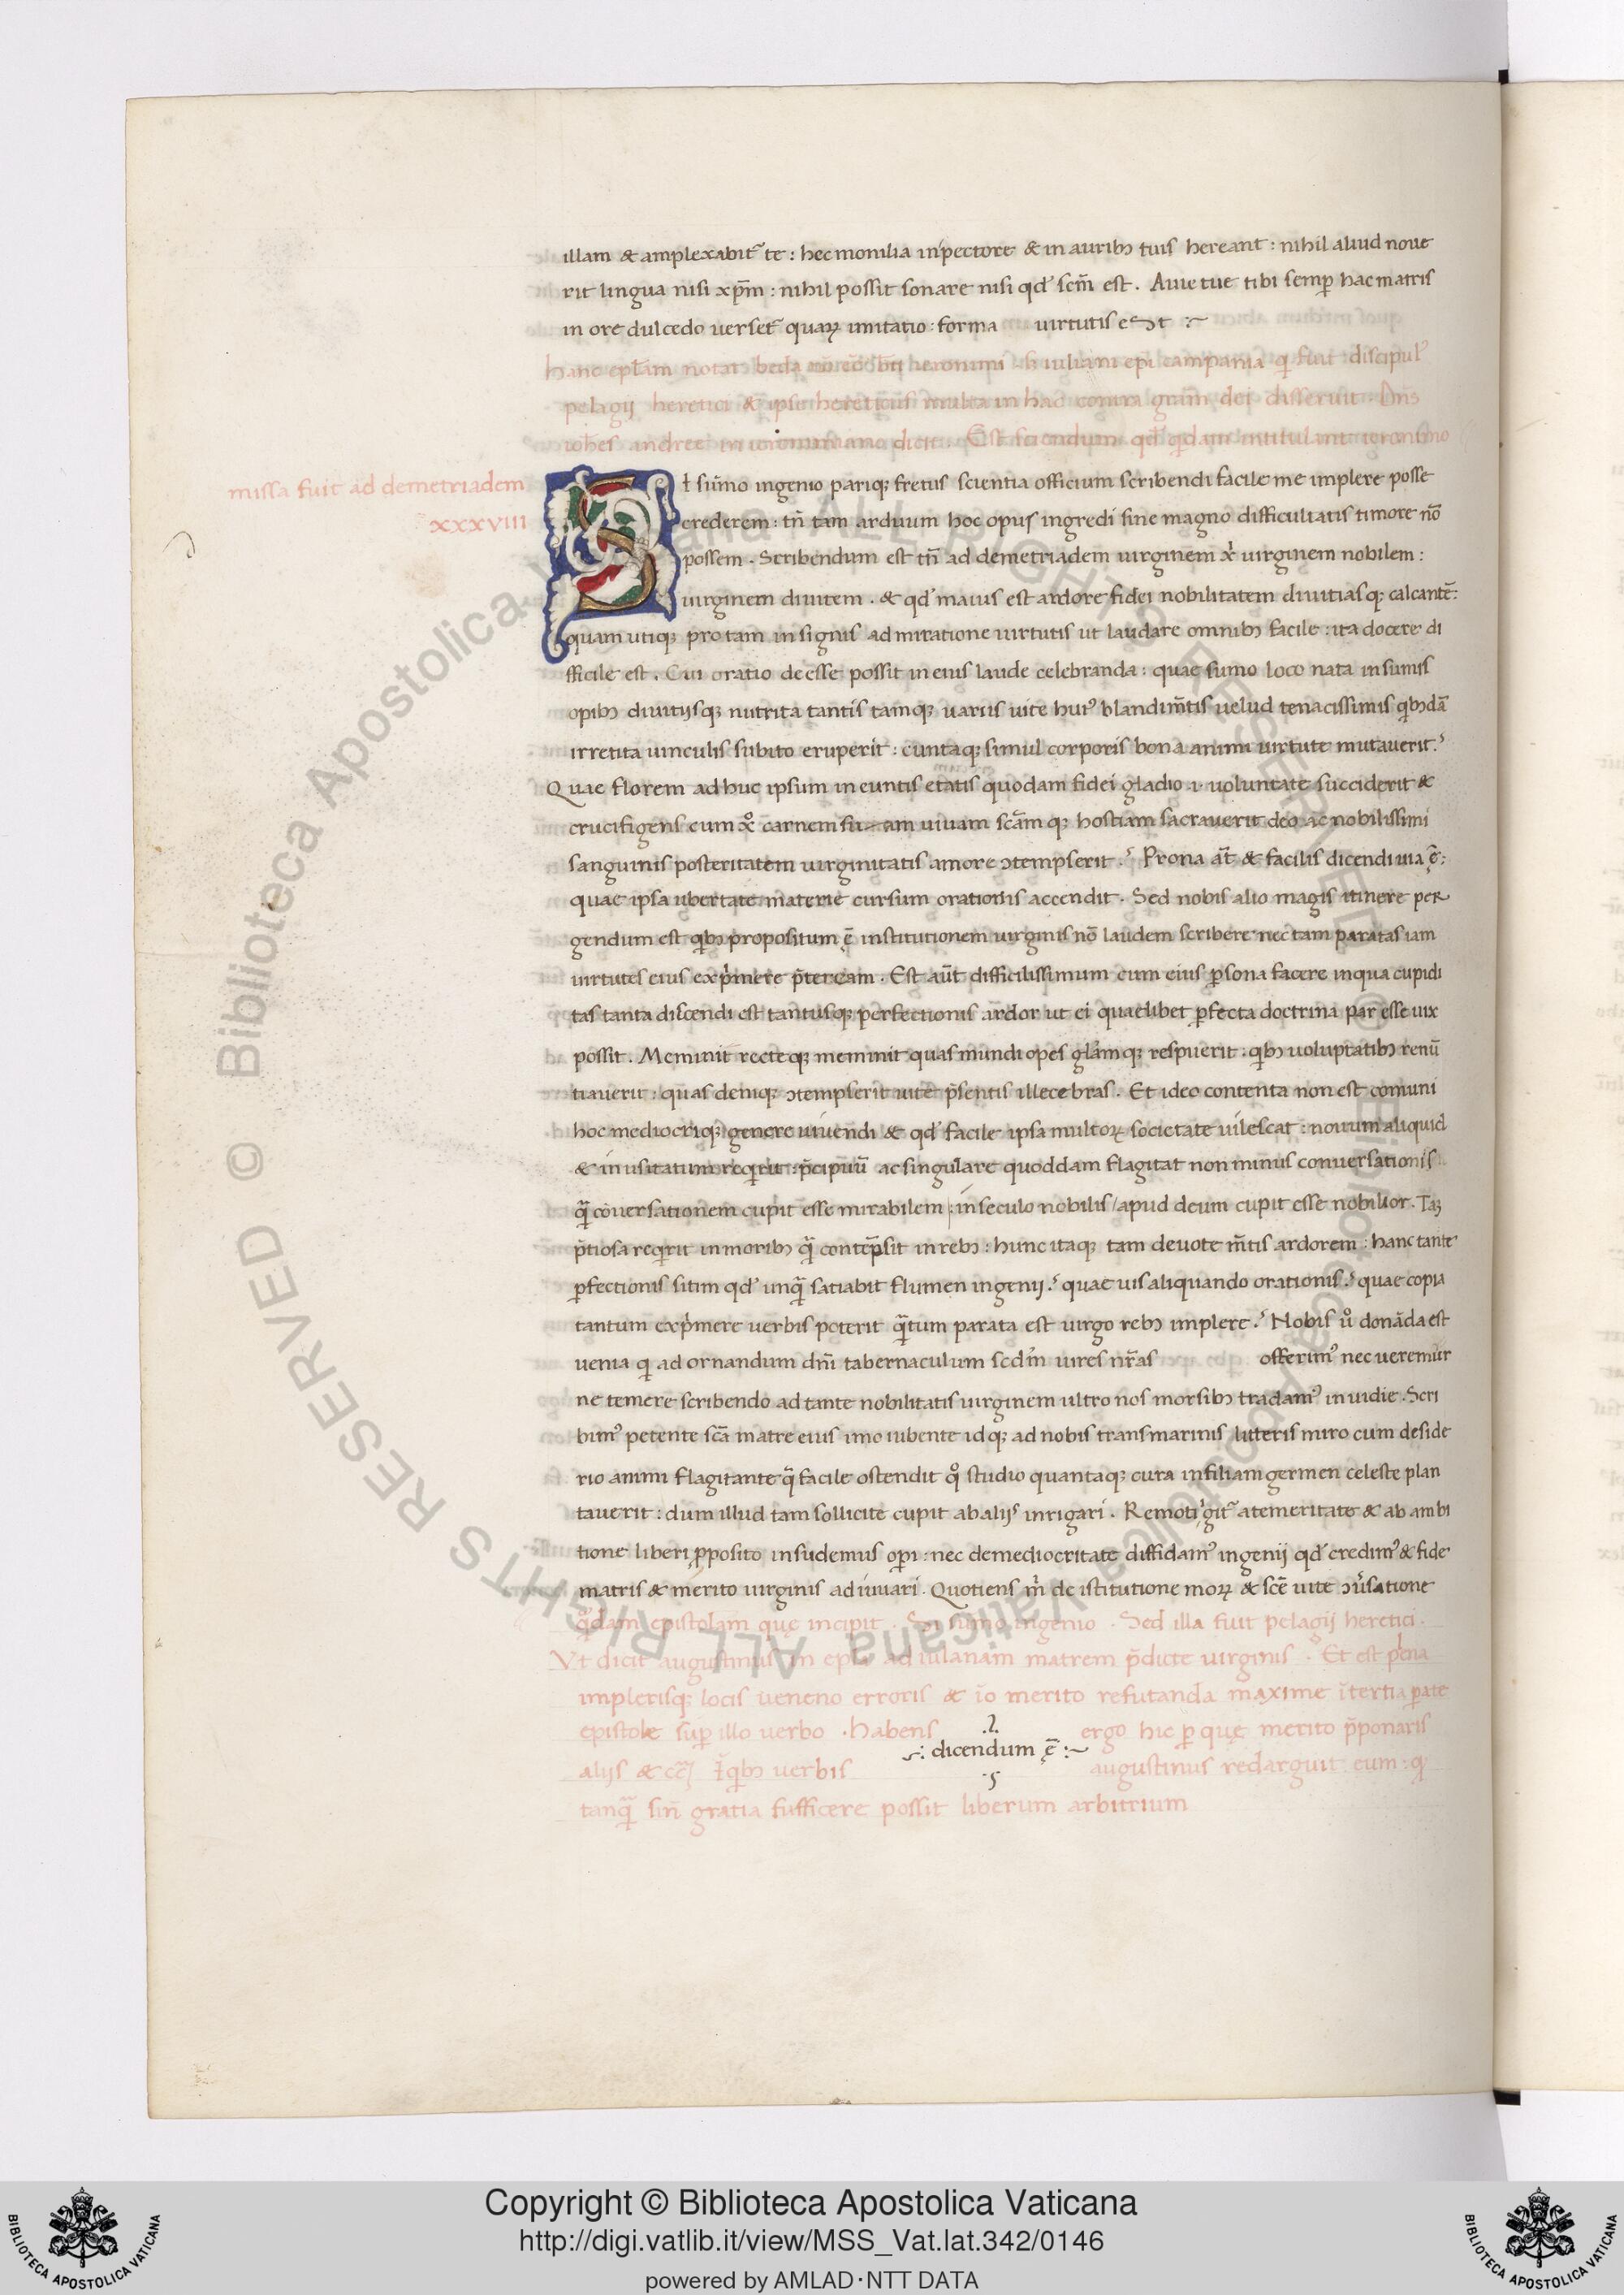 illam & amplexabit᷑ te : hec monilia in pectore & in aurib; tuis hereant : nihil aliud noue
rit lingua nisi xp̄m : nihil possit sonare nisi qd' scm̄ est . Auie tue tibi semp̄ hac matris
in ore dulcedo uerset᷑ quaꝝ imitatio : forma virtutis est :~
hanc epl̄am notat beda iuliani ep̄i campania q̇ fuit discipul᷒
pelagij heretici & ipse hereticus multa in hac contra gr̄am dei disseruit . Dn̄s
ioh̄es andree dicit . Est sciendum qd' q̇dam intitulant ieronimo
missa fuit ad demetriadem
xxxviii
SI sūmo ingenio pariq; fretus scientia officium scribendi facile me implere posse
crederem : tn̄ tam arduum hoc opus ingredi sine magno difficultatis timore nō
possem . Scribendum est tn̄ ad demetriadem uirginem xi̇ uirginem nobilem :
uirginem diuitem . & qd' maius est ardore fidei nobilitatem diuitiasq; calcantē :
quam utiq; pro tam insignis admiratione uirtutis ut laudare omnib; facile : ita docere di
fficile est . Cui oratio deesse possit in eius laude celebranda : quae sūmo loco nata in sūmis
opib; diuitijsq; nutrita tantis tamq; uariis uite hui᷒ blandim̄tis uelud tenacissimis q̇b;dā
irretita uinculis subito eruperit : cuntaq; simul corporis bona animi uirtute mutauerit .᷒
Quae florem adhuc ipsum in euntis etatis quodam fidei gladio .i. uoluntate succiderit &
crucifigens cum xo̊ carnem suam uiuam scāmq; hostiam sacrauerit deo ac nobilissimi
sanguinis posteritatem uirginitatis amore ↄtempserit .᷒ Prona at̄ & facilis dicendi uia ē :
quae ipsa ubertate materie cursum orationis accendit . Sed nobis alio magis itinere per
gendum est q̇b; propositum ē institutionem uirginis nō laudem scribere nec tam paratas iam
uirtutes eius exp̍mere p̄teream . Est aūt difficilissimum cum eius p̱sona facere in qua cupidi
tas tanta discendi est tantusq; perfectionis ardor ut ei quaelibet p̱fecta doctrina par esse uix
possit . Meminit recteq; meminit quas mundi opes glām q; respuerit : q̇b; uoluptatib; renū
tiauerit : quas deniq; ↄtempserit uite p̄sentis illecebras . Et ideo contenta non est comuni
hoc mediocriq; genere uiuendi & qd' facile ipsa multoꝝ societate uilescat : nouum aliquid
& inusitatum reqirit : p̄cipuū ac singulare quoddam flagitat non minus conuersationis
q̄ cōuersationem cupit esse mirabilem : in seculo nobilis / apud deum cupit esse nobilior . Taꝫ
p̄tiosa reqirit in morib; q̄ contēpsit in reb; : hunc itaq; tam deuote m̄tis ardorem : hanc tante
p̱fectionis sitim qd' unq̄ satiabit flumen ingenij .᷒ quae uis aliquando orationis .᷒ quae copia
tantum exp̍mere uerbis poterit q̄tum parata est uirgo reb; implere .᷒ Nobis u̇o donāda est
uenia q̇ ad ornandum dn̄i tabernaculum scdm̄ uires nr̄as offerim᷒ nec ueremur
ne temere scribendo ad tante nobilitatis uirginem ultro nos morsib; tradam᷒ inuidie . Scri
bim᷒ petente scā matre eius imo iubente idq; ad nobis transmarinis litteris miro cum deside
rio animi flagitante q̄ facile ostendit qo̊ studio quantaq; cura in filiam germen celeste plan
tauerit : dum illud tam sollicite cupit ab alijs inrigari . Remoti ġit᷑ a temeritate & ab ambi
tione liberi p̱posito insudemus op̱i : nec de mediocritate diffidam᷒ ingenij qd' credim᷒ & fide
matris & merito uirginis adiuuari . Quotiens m̍ de istitutione moꝝ & scē uite ↄu̇satione
qo̊dam epistolam quę incipit . Si sūmo ingenio . Sed illa fuit pelagij heretici .
Vt dicit augustinus in epl̄a ad iulanam matrem p̄dicte uirginis . Et est plena
implerisq; locis ueneno erroris & io̅ merito refutanda maxime ī tertia p̱ate
epistole sup̱ illo uerbo . habens ergo hic p̱ que merito p̄ponaris
dicendum ē :~
alijs & cc̄ I q̇b; uerbis augustinus redarguit eum : q̇
tanq̄ sin̄ gratia sufficere possit liberum arbitrium
© Biblioteca Apostolica Vaticana ALL RIGHTS RESERVED © Biblioteca Apostolica Vaticana ALL RIGHTS RESERVED
Copyright © Biblioteca Apostolica Vaticana
http://digi.vatlib.it/view/MSS_Vat.lat.342/0146
powered by AMLAD·NTT DATA
BIBLIOTECA APOSTOLICA VATICANA
BIBLIOTECA APOSTOLICA VATICANA